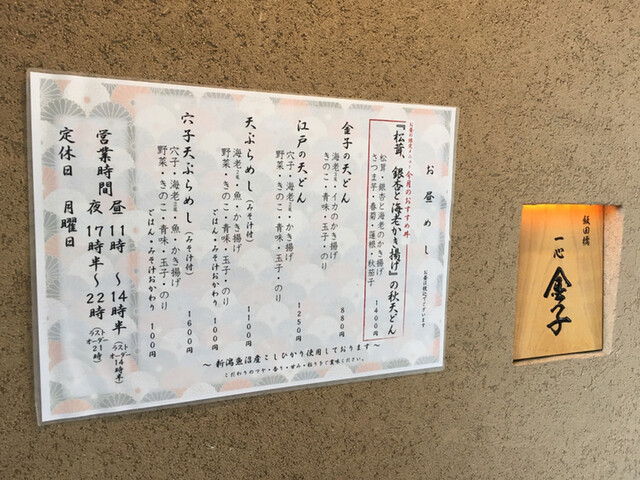 お昼めし
お昼は税込でございます
お昼の限定メニュー 今月のおすすめ丼
『松茸、銀杏と海老かき揚げ』の秋天どん
松茸・銀杏と海老のかき揚げ
さつま芋・春菊・蓮根・秋茄子
1400円
金子の天どん
海老2尾・イカのかき揚げ
野菜・きのこ・青味・玉子・のり
880円
江戸の天どん
穴子・海老・かき揚げ
野菜・きのこ・青味・玉子・のり
1250円
天ぷらめし(みそ汁付)
海老2尾・魚・かき揚げ
野菜・きのこ・青味・玉子・のり
1100円
ごはん・みそ汁おかわり 100円
穴子天ぷらめし(みそ汁付)
穴子・海老2尾・魚・かき揚げ
野菜・きのこ・青味・玉子・のり
1600円
ごはん・みそ汁おかわり 100円
～新潟魚沼産こしひかり使用しております～
こだわりのツヤ・香り・甘み・粘りをご賞味ください。
営業時間 昼 11時～14時半(ラストオーダー14時半)
夜 17時半～22時(ラストオーダー21時)
定休日 月曜日
飯田橋
一心
金子